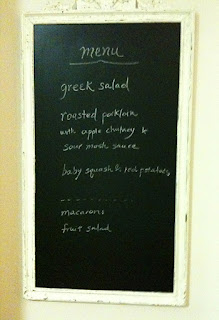 menu
greek salad
roasted porkloin
with apple chutney &
sour mash sauce
baby squash & red potatoes
macarons
fruit salad